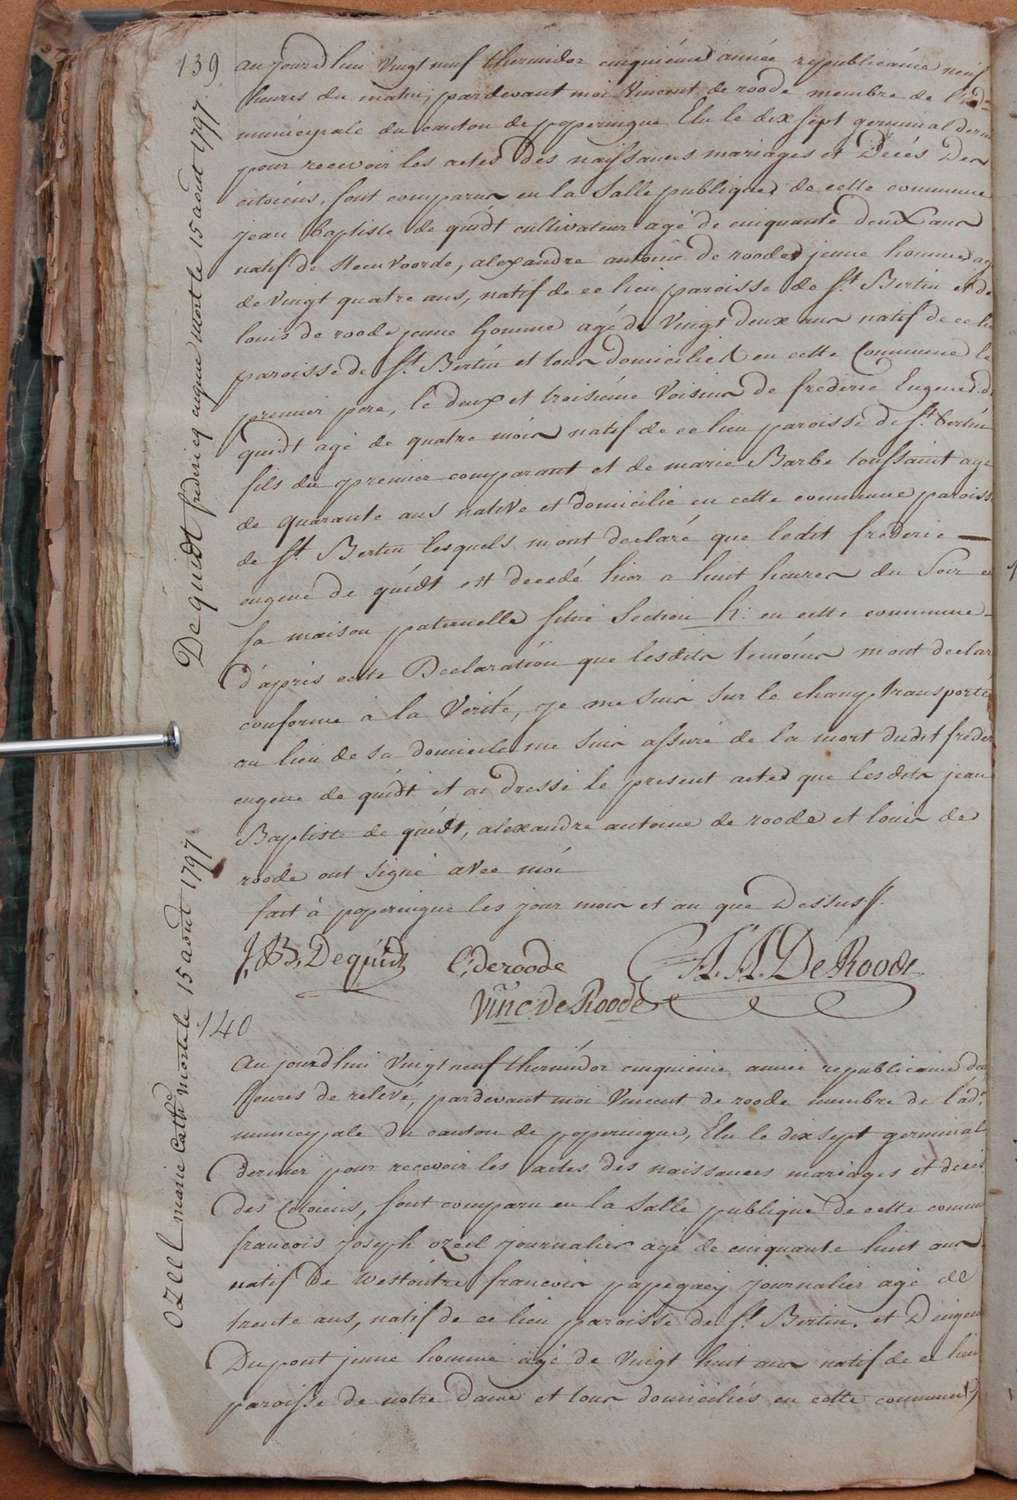 139
Dequidt fredericq eugene mort le 15 aout 1797.
aujourdhui vingt neuf thermidor cinquiéme année républicaine neuf
heures du matin, pardevant moi Vincent de roode membre de l'ad.
municipale du canton de poperingue Elu le dix sept germinal dernier
pour recevoir les actes des naissances mariages et Décés Des
citoiens, sont comparus en la Salle publique de cette commune
jean baptiste de quidt cultivateur agé de cinquante deux ans
natif de Steenvoorde, alexandre antoine de roode jeune homme agé
de vingt quatre ans, natif de ce lieu paroisse de St Bertin et de
louis de roode jeune homme agé de vingt deux ans natif de ce lieu
paroisse de St. Bertin et tous domiciliés en cette Commune le
premier pere, le deux et troisiéme Voisins de frederic Eugene de
quidt agé de quatre mois natif de ce lieu paroisse de St. bertin
fils du premier comparant et de marie Barbe toussaint agé
de quarante ans native et domicilié en cette commune paroisse
de St. Bertin lesquels m'ont declaré que ledit frederic
eugene de quidt est decedé hier a huit heures du Soir en
sa maison paternelle scitué Section h: en cette commune
d'aprés cette Declaration que lesdits temoins m'ont declaré
conforme à la Verité, je me suis sur le champ transporté
au lieu de sa domicile me suis assuré de la mort dudit frederic
eugene de quidt et ai dressé le present acte que lesdits jean
Baptiste de quidt, alexandre antoine de roode et louis de
roode ont signé avec moi
fait à poperingue les jour mois et an que Dessus
J. B. Dequidt L. deroode A. A. De Roode
Vinc. De Roode
140
ozeel marie Cathe morte le 15 aout 1797
Aujourdhui vingt neuf thermidor cinquieme année republicaine deux
heures de relevé, pardevant moi Vincent de roode membre de l'ad.
municipale du canton de poperingue, Elu le dix sept germinal
dernier pour recevoir les actes des naissances mariages et décés
des Citoiens, sont comparu en la Salle publique de cette commune
francois Joseph ozeel journalier agé de cinquante huit ans
natif de Westoutre francois papegaeij journalier agé de
trente ans, natif de ce lieu paroisse de St. Bertin. et Dingue
Dupont jeune homme agé de vingt huit ans natif de ce lieu
paroisse de notre dame et tous domiciliés en cette commune